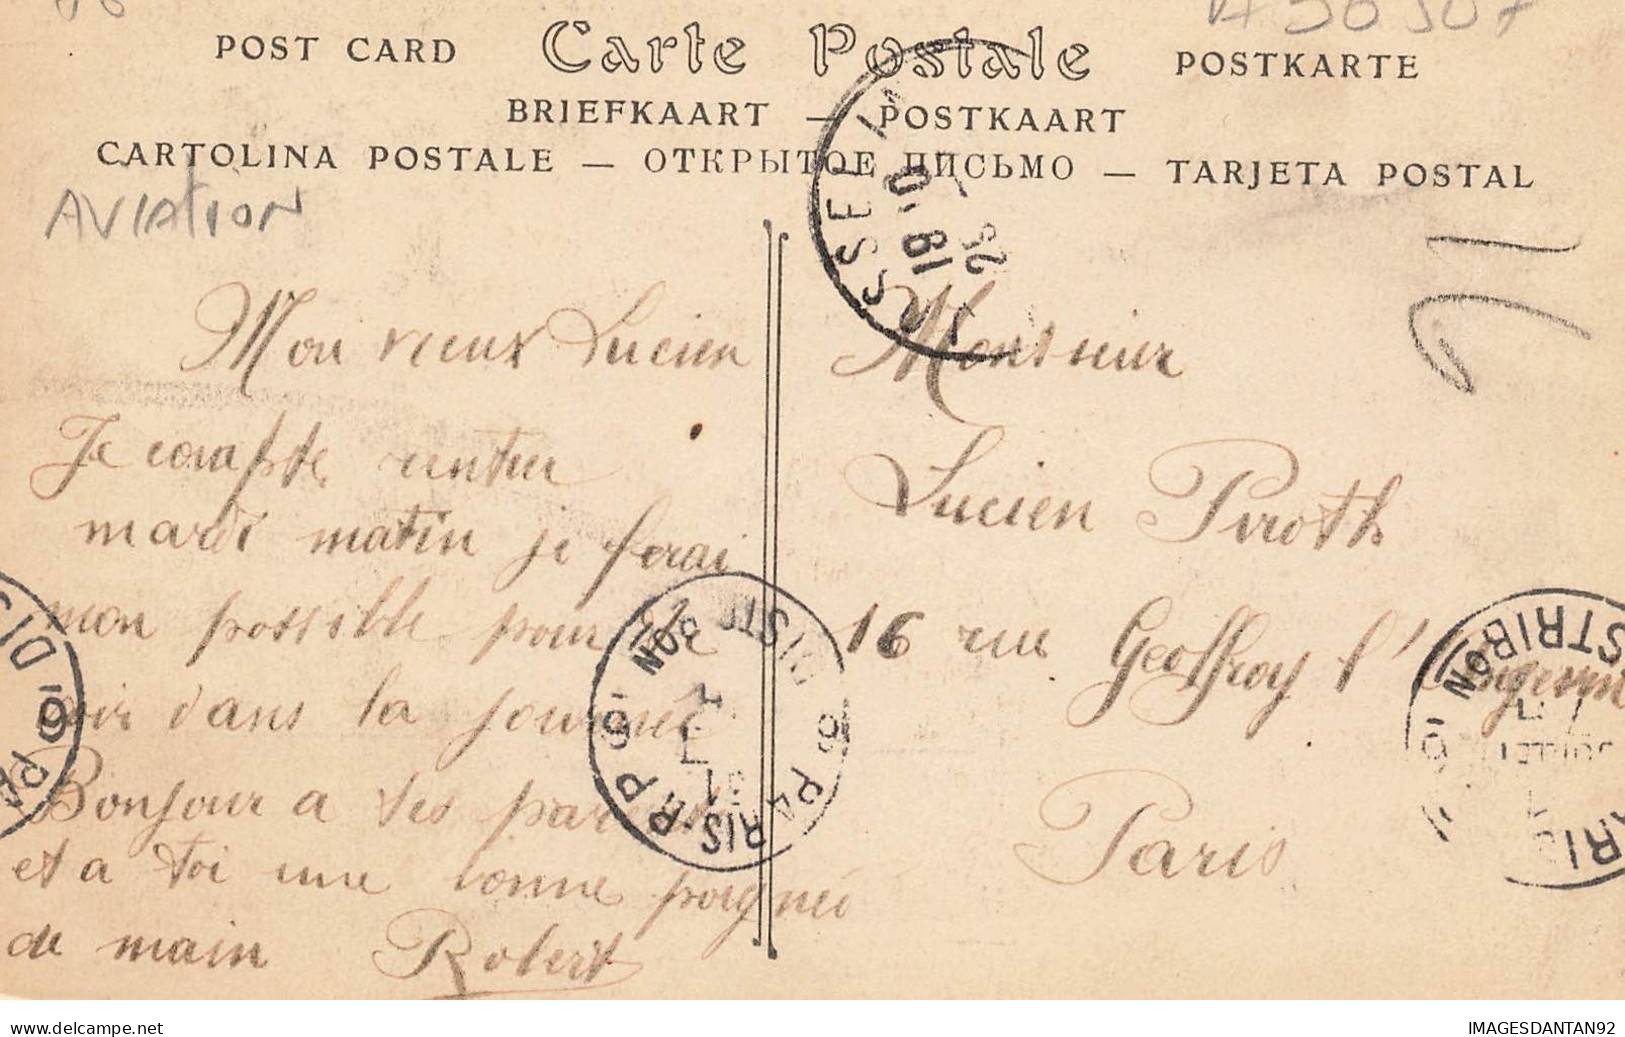 POST CARD Carte Postale POSTKARTE
BRIEFKAART — POSTKAART
CARTOLINA POSTALE — ОТКРЫТОЕ ПИСЬМО — TARJETA POSTAL
AVIATION
Mon vieux Lucien
Je compte rentrer
mardi matin je ferai
mon possible pour te
voir dans la journée
Bonjour a tes parents
et a toi une bonne poignée
de main Robert
Monsieur
Lucien Piroth
16 rue Geoffroy l'Angevin
Paris
PARIS R.P
DISTRIBON
delcampe.net
IMAGESDANTAN92